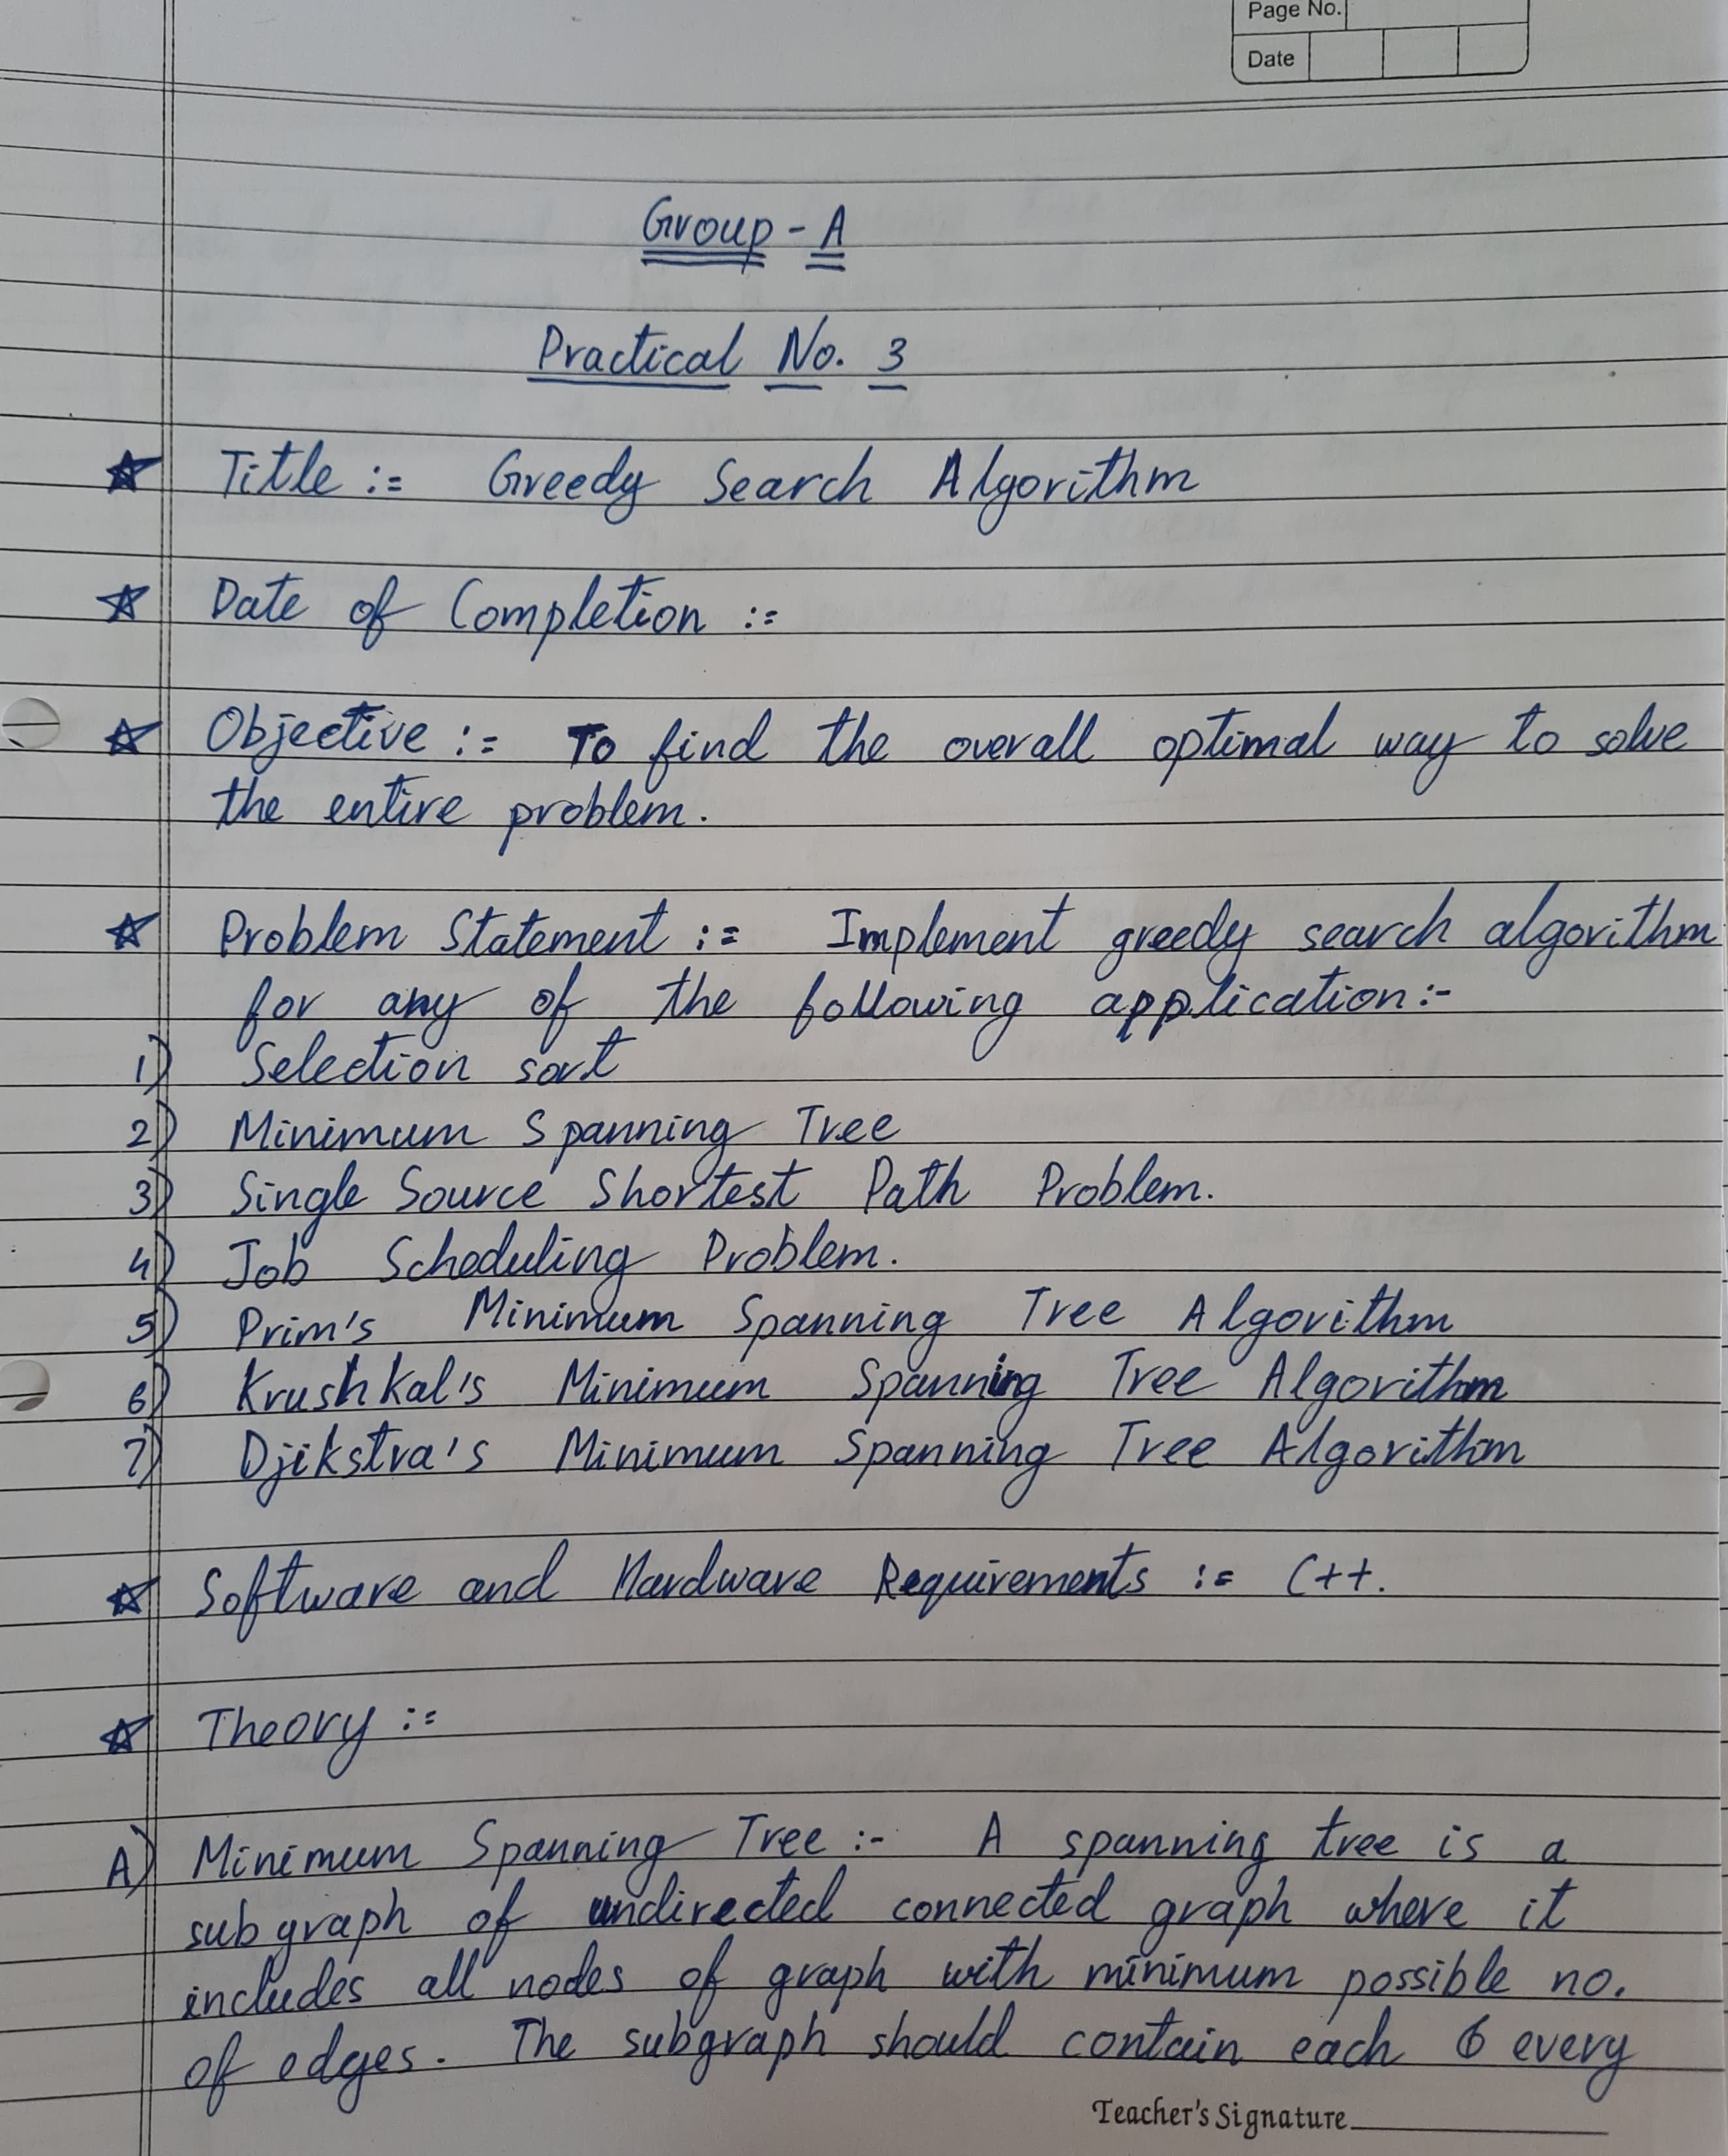 Page No.
Date
Group - A
Practical No. 3
Title := Greedy Search Algorithm
Date of Completion :=
Objective := To find the overall optimal way to solve
the entire problem.
Problem Statement := Implement greedy search algorithm
for any of the following application:-
1) Selection sort
2) Minimum Spanning Tree
3) Single Source Shortest Path Problem.
4) Job Scheduling Problem.
5) Prim's Minimum Spanning Tree Algorithm
6) Krushkal's Minimum Spanning Tree Algorithm
7) Djikstra's Minimum Spanning Tree Algorithm
Software and Hardware Requirements := C++.
Theory :=
A) Minimum Spanning Tree :- A spanning tree is a
subgraph of undirected connected graph where it
includes all nodes of graph with minimum possible no.
of edges. The subgraph should contain each & every
Teacher's Signature